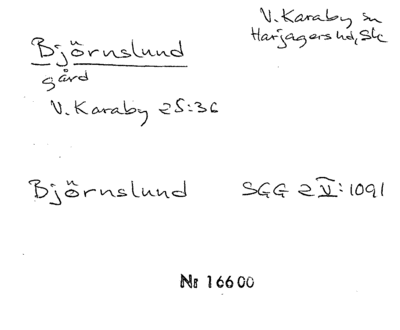 Björnslund
V. Karaby sn
Harjagers hd, Sk
gård
V. Karaby 25:36
Björnslund SGG 2 V:1091
Nr 16600